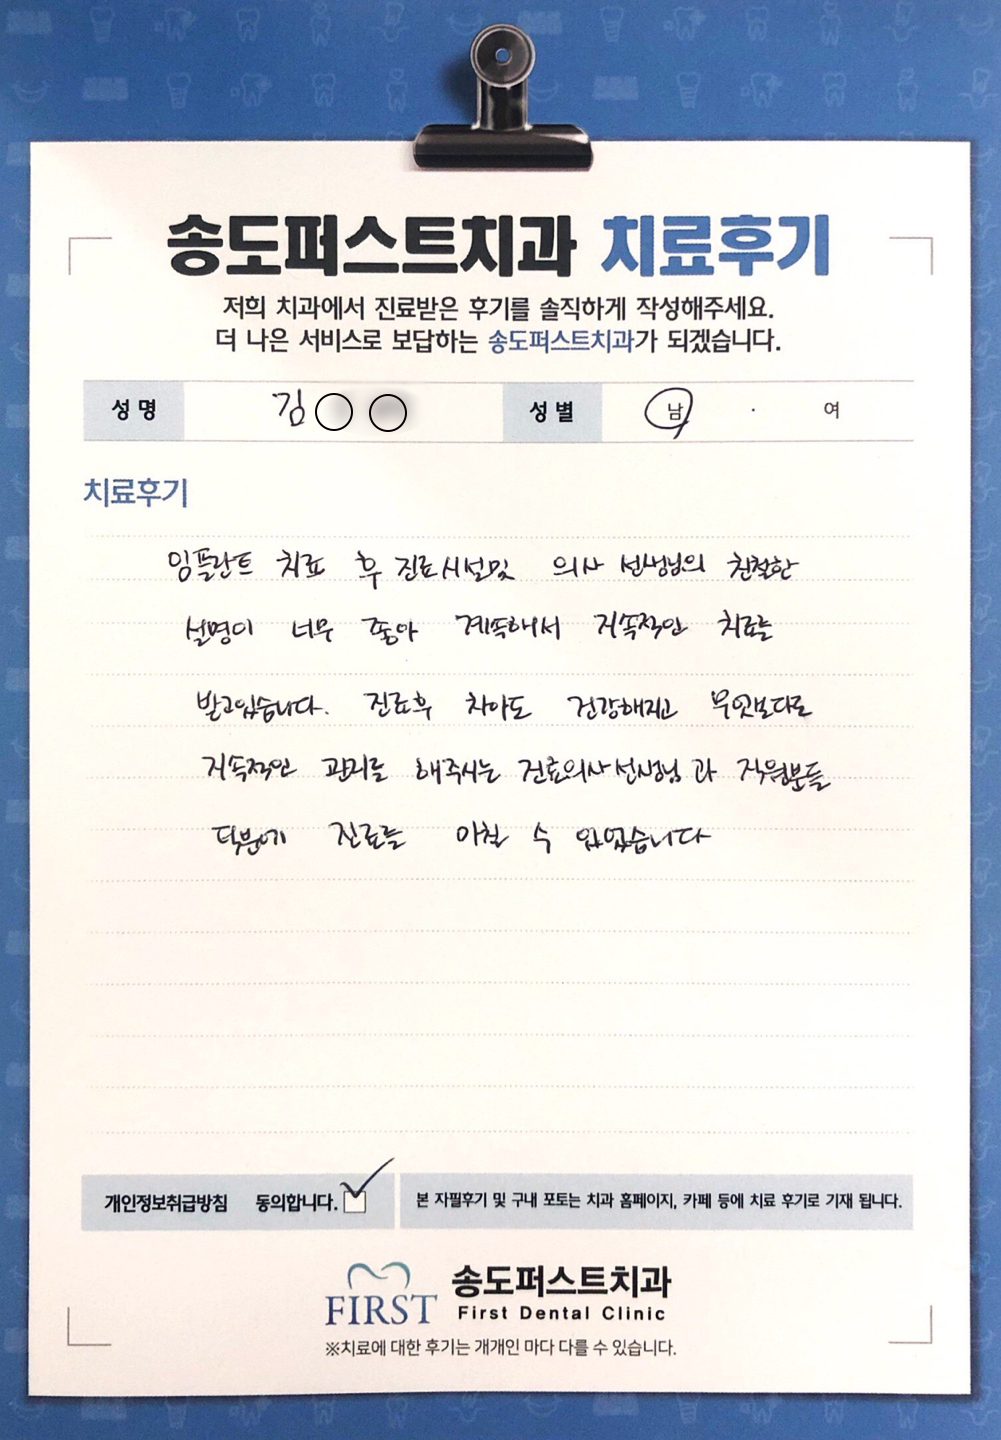 송도퍼스트치과 치료후기
저희 치과에서 진료받은 후기를 솔직하게 작성해주세요.
더 나은 서비스로 보답하는 송도퍼스트치과가 되겠습니다.
성명 김○○ 성별 남 · 여
치료후기
임플란트 치료 후 진료시설및 의사 선생님의 친절한
설명이 너무 좋아 계속해서 지속적인 치료를
받고있습니다. 진료후 치아도 건강해지고 무엇보다도
지속적인 관리를 해주시는 진료의사선생님과 직원분들
덕분에 진료를 마칠 수 있었습니다
개인정보취급방침 동의합니다.
본 자필후기 및 구내 포토는 치과 홈페이지, 카페 등에 치료 후기로 기재 됩니다.
FIRST 송도퍼스트치과
First Dental Clinic
※치료에 대한 후기는 개개인 마다 다를 수 있습니다.